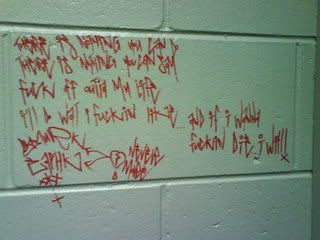 THERE IS NOTHING YOU CAN
THERE IS NOTHING YOU CAN SAY
FUCK OUTTA MY LIFE
ill D WAT I FUCKIN LIKE
...AND IF I WANNA
FUCKIN DIE..I WILL!
NEVER